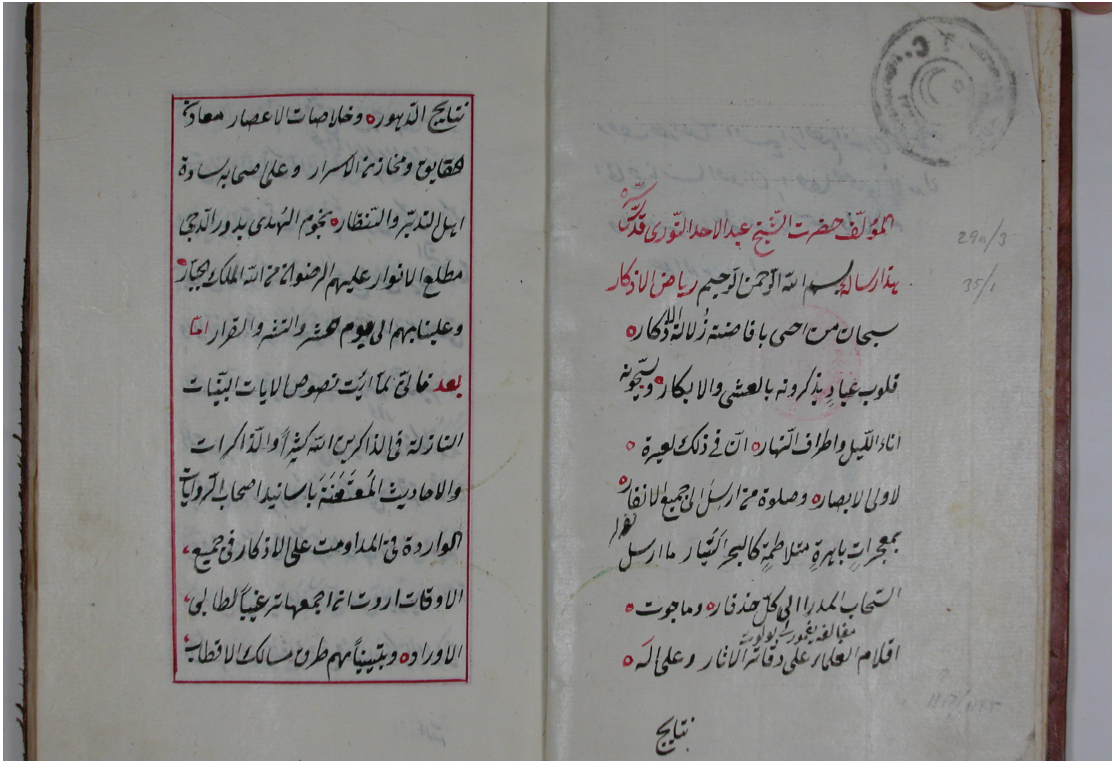 المؤلف حضرت الشيخ عبد الاحد النورى قدس سره
هذا رساله بسم الله الرحمن الرحيم رياض الاذكار
سبحان من احيى بافاضة زلالة الاذكار
قلوب عباد يذكرونه بالعشى والابكار ويسبحونه
اناء الليل واطراف النهار ان فى ذلك لعبرة
لاولى الابصار وصلوة من ارسل الى جميع الانفار
بمعجرات باهرة متلاطمة كالبحر التيار ما ارسل
السحاب المدرارا الى كل حذفار وما جرت
اقلام العلماء على دقاتر الاثار وعلى اله
نتايج
نتايج الدهور وخلاصات الاعصار معادن
حقايق ومخازن الاسرار وعلى صحابه سادة
اهل التدبر والتنظار نجوم الهدى بدور الدجى
مطلع الانوار عليهم الرضوان من الله الملك الجبار
وعلينا بهم الى يوم حشر والقرار اما
بعد فانى لما رايت نصوص الايات البينات
النازلة فى الذاكرين الله كثيرا والذاكرات
والاحاديث المعنعنة باسانيد اصحاب الروايات
الواردة فى المداومت على الاذكار فى جميع
الاوقات اردت ان اجمعها ترغيبا لطالبى
الاوراد وتبيينا مهم طرق مسالك الاقطاب
290/3
35/1